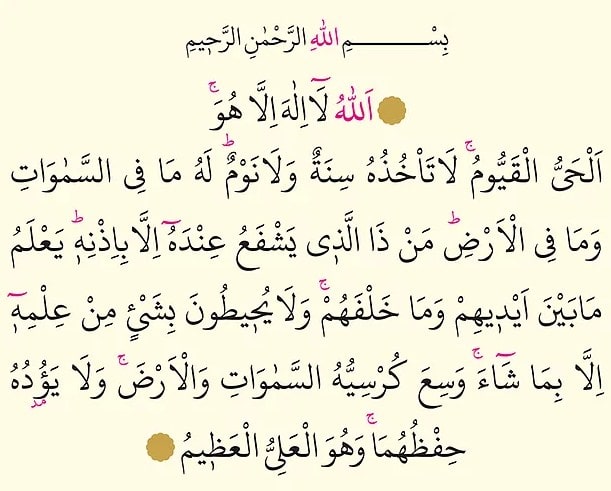 بِسْــــــــــمِ اللّٰهِ الرَّحْمٰنِ الرَّحٖيمِ
اَللّٰهُ لَٓا اِلٰهَ اِلَّا هُوَۚ
اَلْحَىُّ الْقَيُّومُۚ لَا تَأْخُذُهُ سِنَةٌ وَلَا نَوْمٌؕ لَهُ مَا فِى السَّمٰوَاتِ
وَمَا فِى الْاَرْضِؕ مَنْ ذَا الَّذٖى يَشْفَعُ عِنْدَهُٓ اِلَّا بِاِذْنِهٖؕ يَعْلَمُ
مَا بَيْنَ اَيْدٖيهِمْ وَمَا خَلْفَهُمْۚ وَلَا يُحٖيطُونَ بِشَىْءٍ مِنْ عِلْمِهٖٓ
اِلَّا بِمَا شَٓاءَۚ وَسِعَ كُرْسِيُّهُ السَّمٰوَاتِ وَالْاَرْضَۚ وَلَا يَؤُدُهُ
حِفْظُهُمَاۚ وَهُوَ الْعَلِىُّ الْعَظٖيمُ